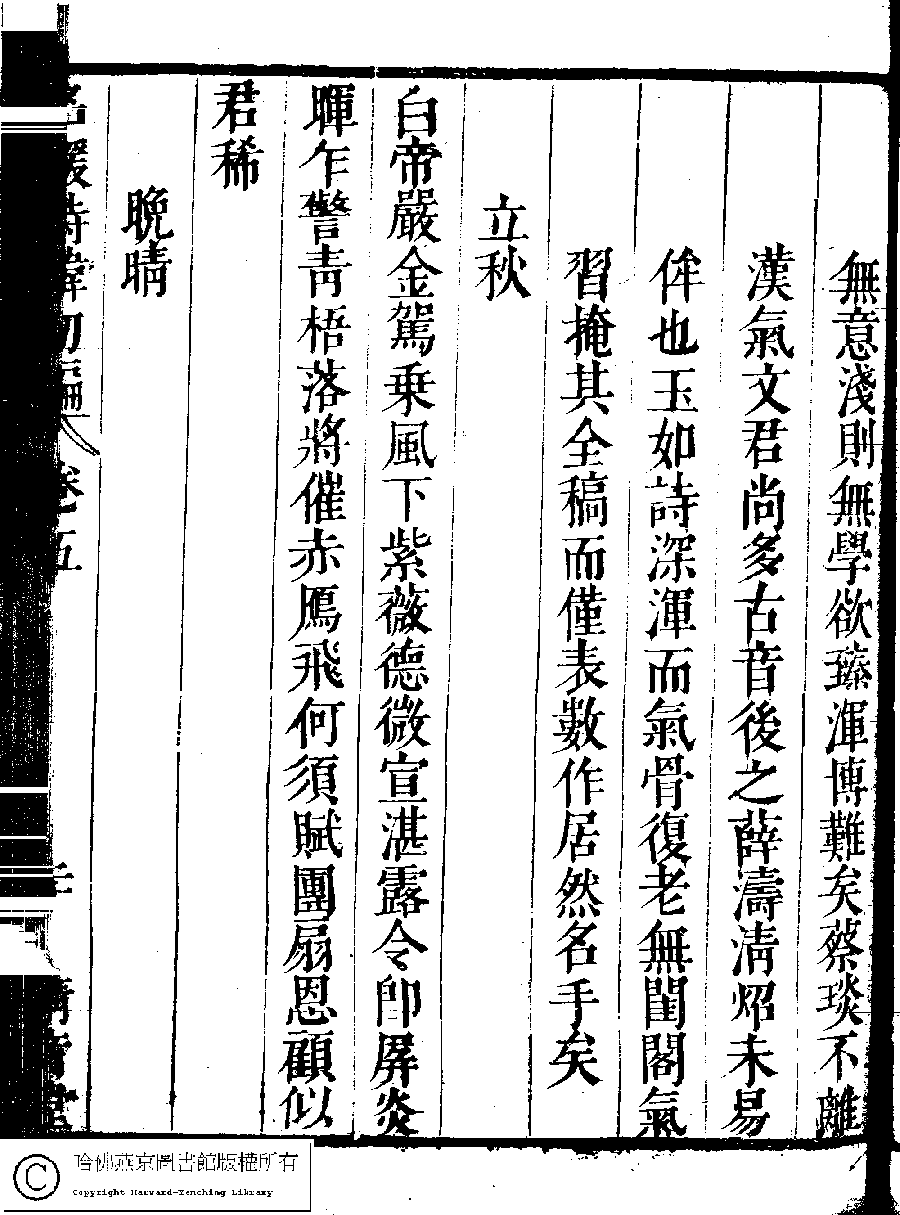 無意淺則無學欲臻渾博難矣蔡琰不離
漢氣文君尚多古音後之薛濤清炤未易
侔也玉如詩深渾而氣骨復老無閨閣氣
習掩其全稿而僅表數作居然名手矣
立秋
白帝嚴金駕乗風下紫薇德微宣湛露令卽屏炎
暉乍警青梧落將催赤鴈飛何須賦團扇恩顧似
君稀
晩晴
名媛詩緯初編 卷五
哈佛燕京圖書館版權所有
Copyright Harvard-Yenching Library